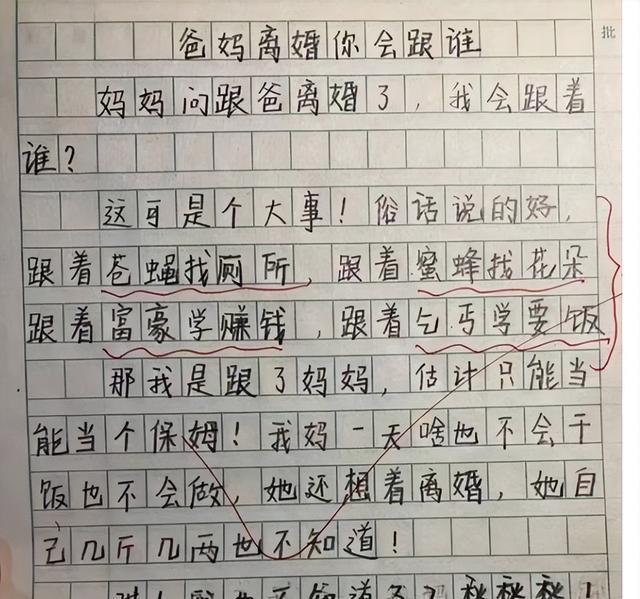 爸妈离婚你会跟谁
批
妈妈问跟爸离婚了，我会跟着
谁？
这可是个大事！俗话说的好，
跟着苍蝇找厕所，跟着蜜蜂找花朵
跟着富豪学赚钱，跟着乞丐学要饭
那我是跟了妈妈，估计只能当
能当个保姆！我妈一天啥也不会干
饭也不会做，她还想着离婚，她自
己几斤几两也不知道！